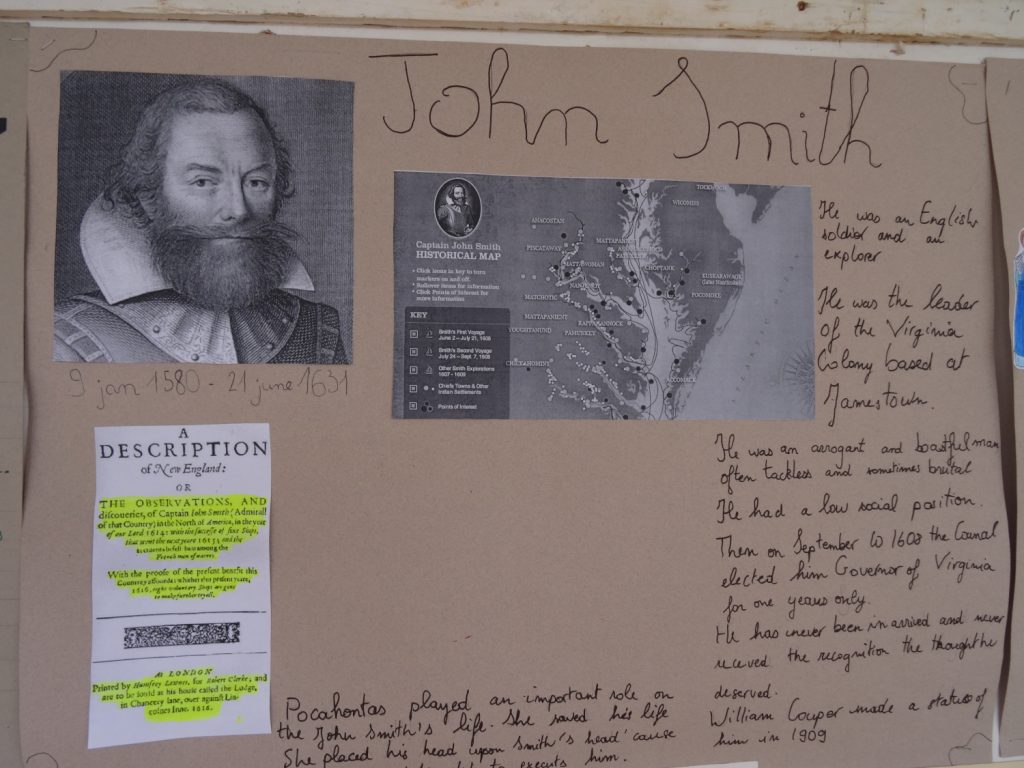 John Smith
9 jan 1580 - 21 june 1631
Captain John Smith
HISTORICAL MAP
• Click items in key to turn
markers on and off.
• Rollover items for information
• Click Points of Interest for
more information
KEY
Smith's First Voyage
June 2 – July 21, 1608
Smith's Second Voyage
July 24 – Sept. 7, 1608
Other Smith Explorations
1607 - 1609
Chiefs Towns & Other
Indian Settlements
Points of Interest
TOCKWOGH
WICOMISS
ANACOSTAN
PISCATAWAY
MATTAPANIENT
MATTAWOMAN
NANJEMOY
CHOPTANK
KUSKARAWAOK
POCOMOKE
MATCHOTIC
MATTAPANIENT
RAPPAHANNOCK
YOUGHTANUND
PAMUNKEY
CHICKAHOMINY
ACCOMACK
He was an English
soldier and an
explorer
He was the leader
of the Virginia
Colony based at
Jamestown.
He was an arrogant and boastful man
often tackless and sometimes brutal
He had a low social position.
Then on September 10 1608 the Council
elected him Governor of Virginia
for one years only.
He has inever been in arrived and never
received the recognition the thought he
deserved.
William Couper made a statues of
him in 1909
A
DESCRIPTION
of New England:
OR
THE OBSERVATIONS, AND
discoueries, of Captain Iohn Smith (Admirall
of that Country) in the North of America, in the year
of our Lord 1614: with the successe of sixe Ships,
that went the next yeare 1615; and the
accidents befell him among the
French men of warre:
With the proofe of the present benefit this
Countrey affoords: whither this present yeare,
1616, eight voluntary Ships are gone
to make further tryall.
At LONDON
Printed by Humfrey Lownes, for Robert Clerke; and
are to be sould at his house called the Lodge,
in Chancery lane, ouer against Lin-
colnes Inne. 1616.
Pocahontas played an important role on
the John Smith's life. She saved his life
She placed his head upon Smith's head' cause
to executs him.